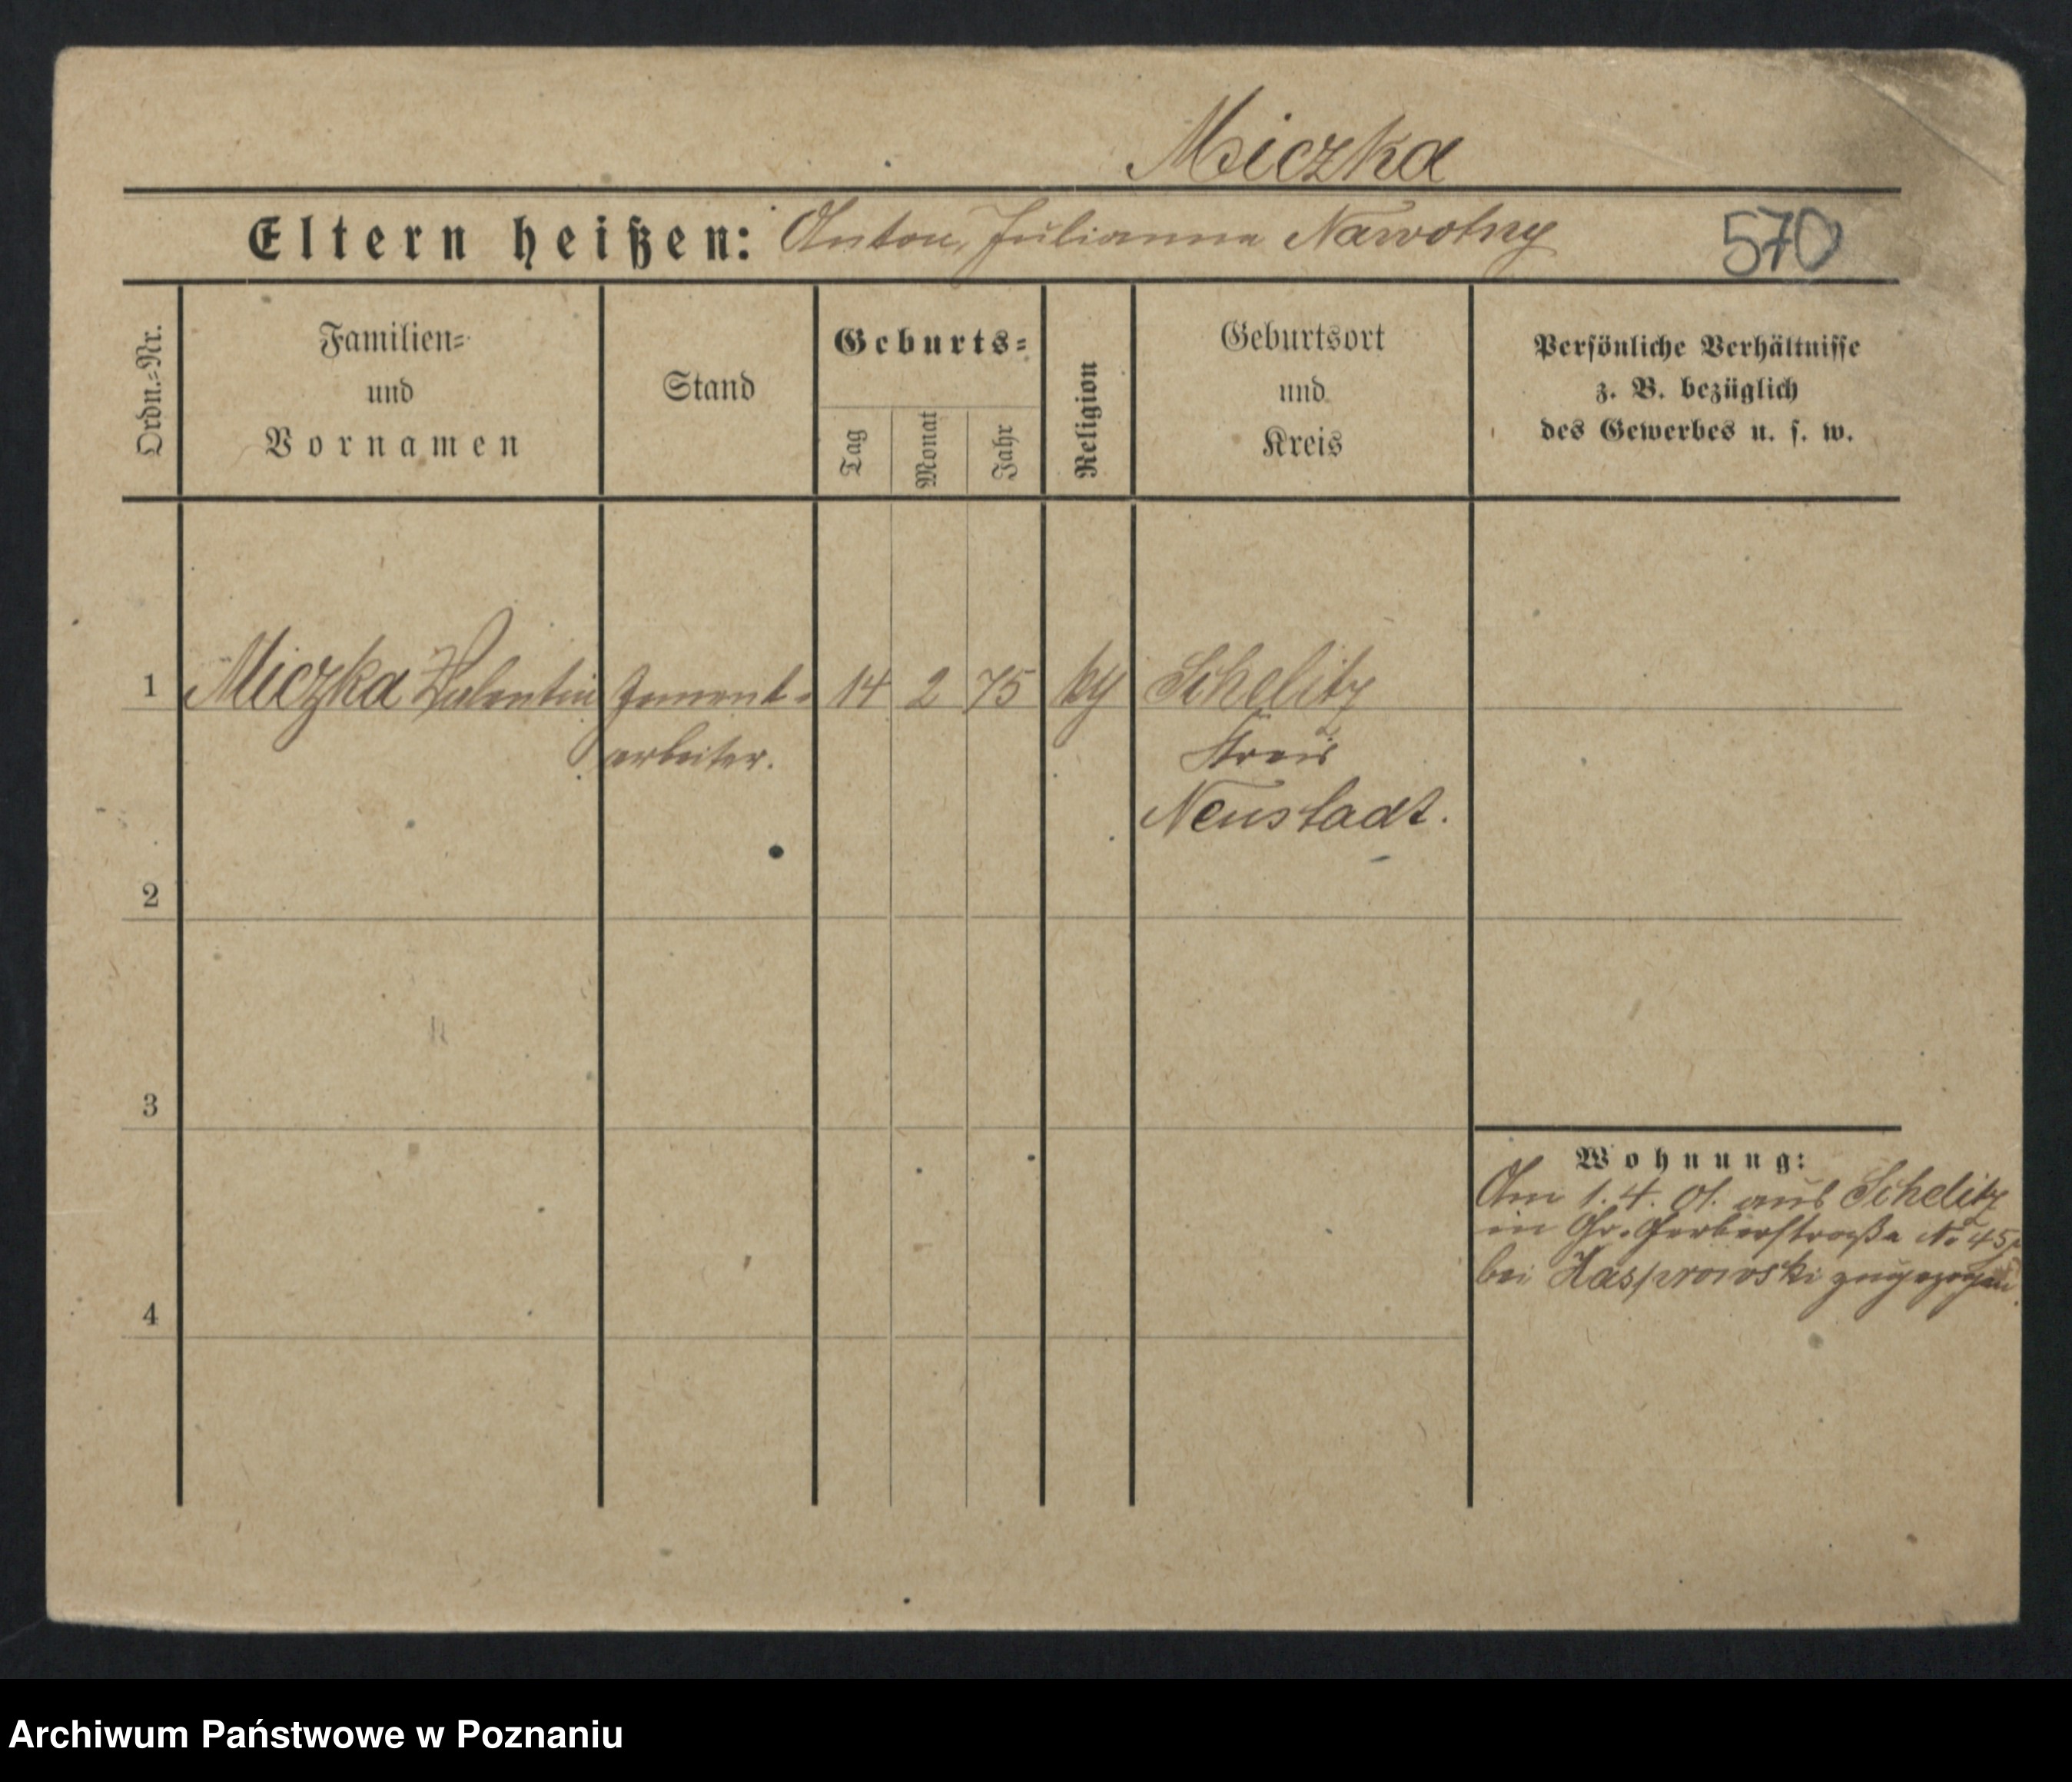 Miczka
Eltern heißen: Anton, Julianna Nawotny 570
Ordn.=Nr.
Familien=
und
Vornamen
Stand
Geburts=
Tag
Monat
Jahr
Religion
Geburtsort
und
Kreis
Persönliche Verhältnisse
z. B. bezüglich
des Gewerbes u. s. w.
1 Miczka Valentin Zement= 14 2 75 Schelitz
arbeiter. Kreis
Neustadt.
2
3
Wohnung:
Am 1. 4. 01. aus Schelitz
in Gr. Gerberstraße No 45
bei Kasprowski zugezogen.
4
Archiwum Państwowe w Poznaniu